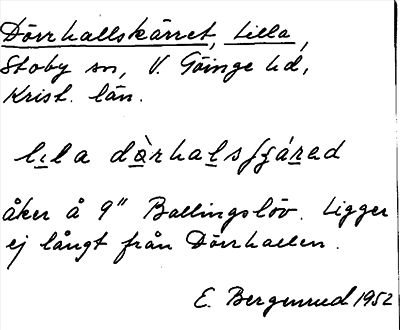 Dörrhallskärret, Lilla,
Stoby sn, V. Göinge hd,
Krist. län.
lila dòrhalsʃǵáred
åker å 9" Ballingslöv. Ligger
ej långt från Dörrhallen.
E. Bergenrud 1952